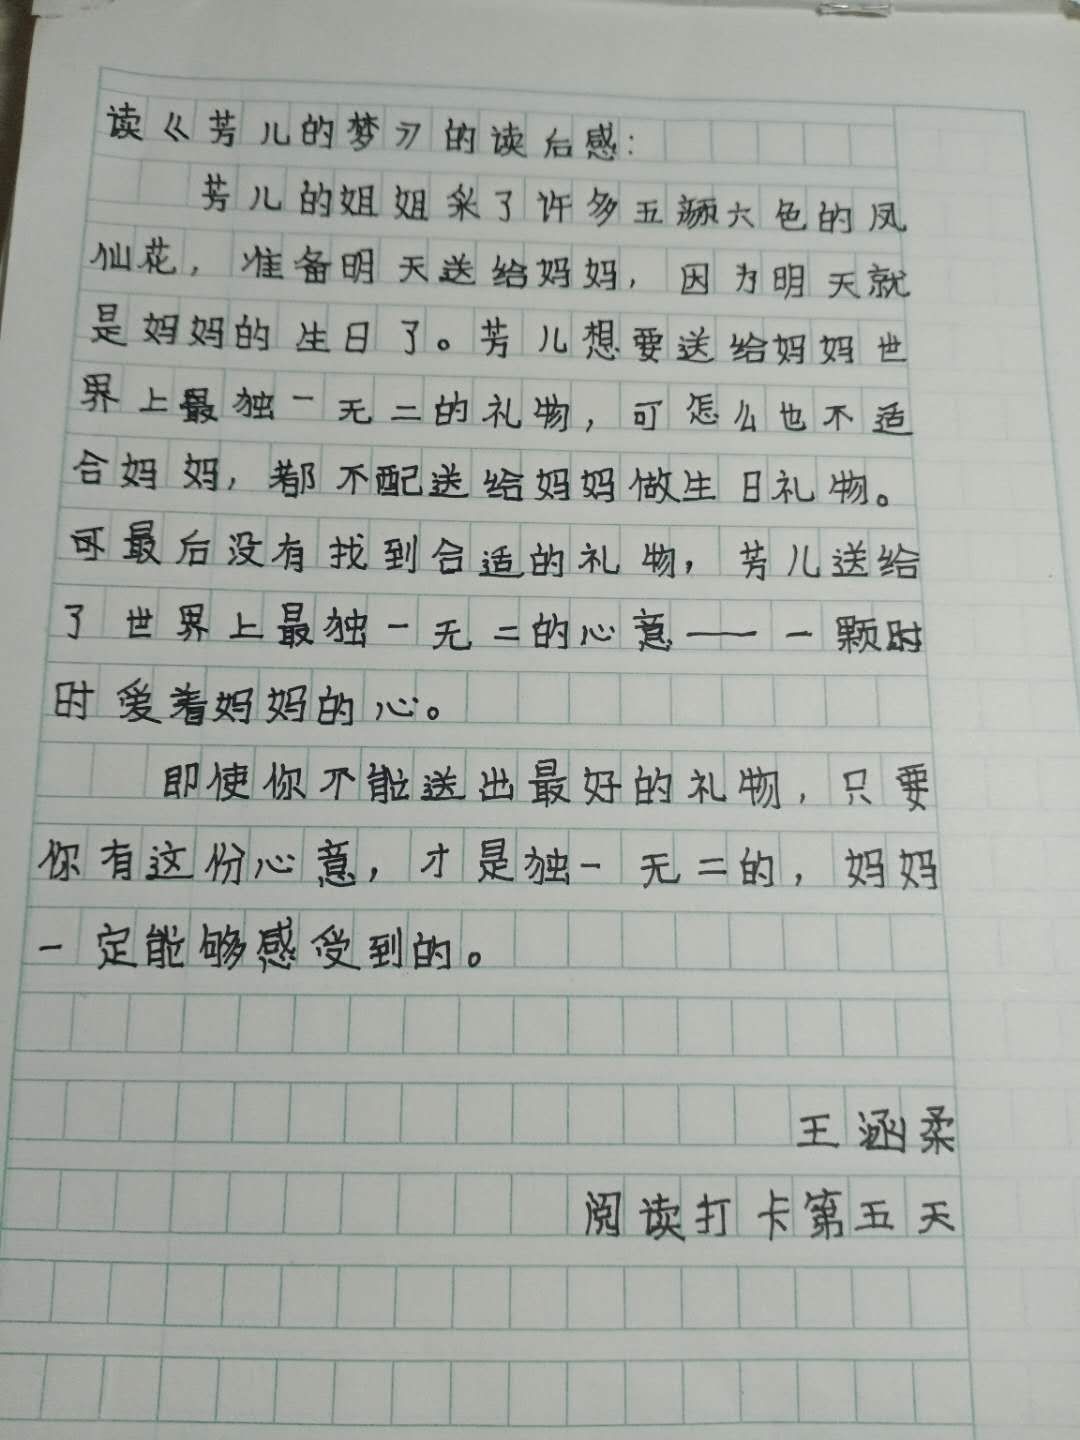 读《芳儿的梦》的读后感：
芳儿的姐姐采了许多五颜六色的凤
仙花，准备明天送给妈妈，因为明天就
是妈妈的生日了。芳儿想要送给妈妈世
界上最独一无二的礼物，可怎么也不适
合妈妈，都不配送给妈妈做生日礼物。
可最后没有找到合适的礼物，芳儿送给
了世界上最独一无二的心意——一颗时
时爱着妈妈的心。
即使你不能送出最好的礼物，只要
你有这份心意，才是独一无二的，妈妈
一定能够感受到的。
王涵柔
阅读打卡第五天